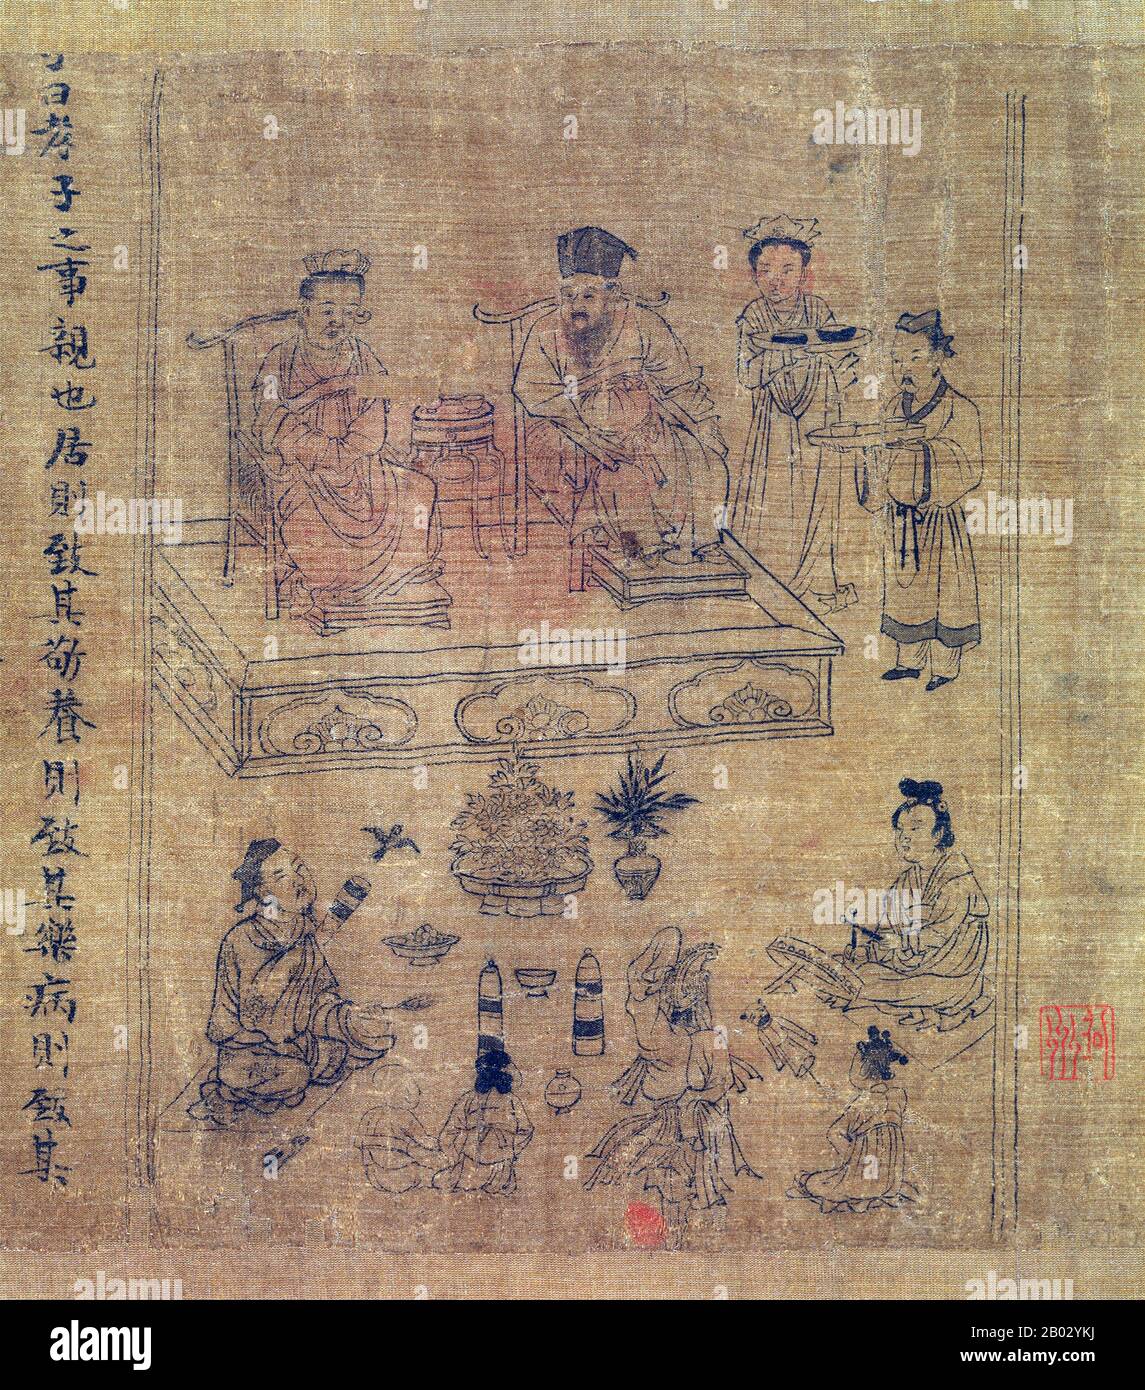 曰孝子之事親也居則致其敬養則致其樂病則致其
alamy
Image ID: 2B02YKJ
www.alamy.com